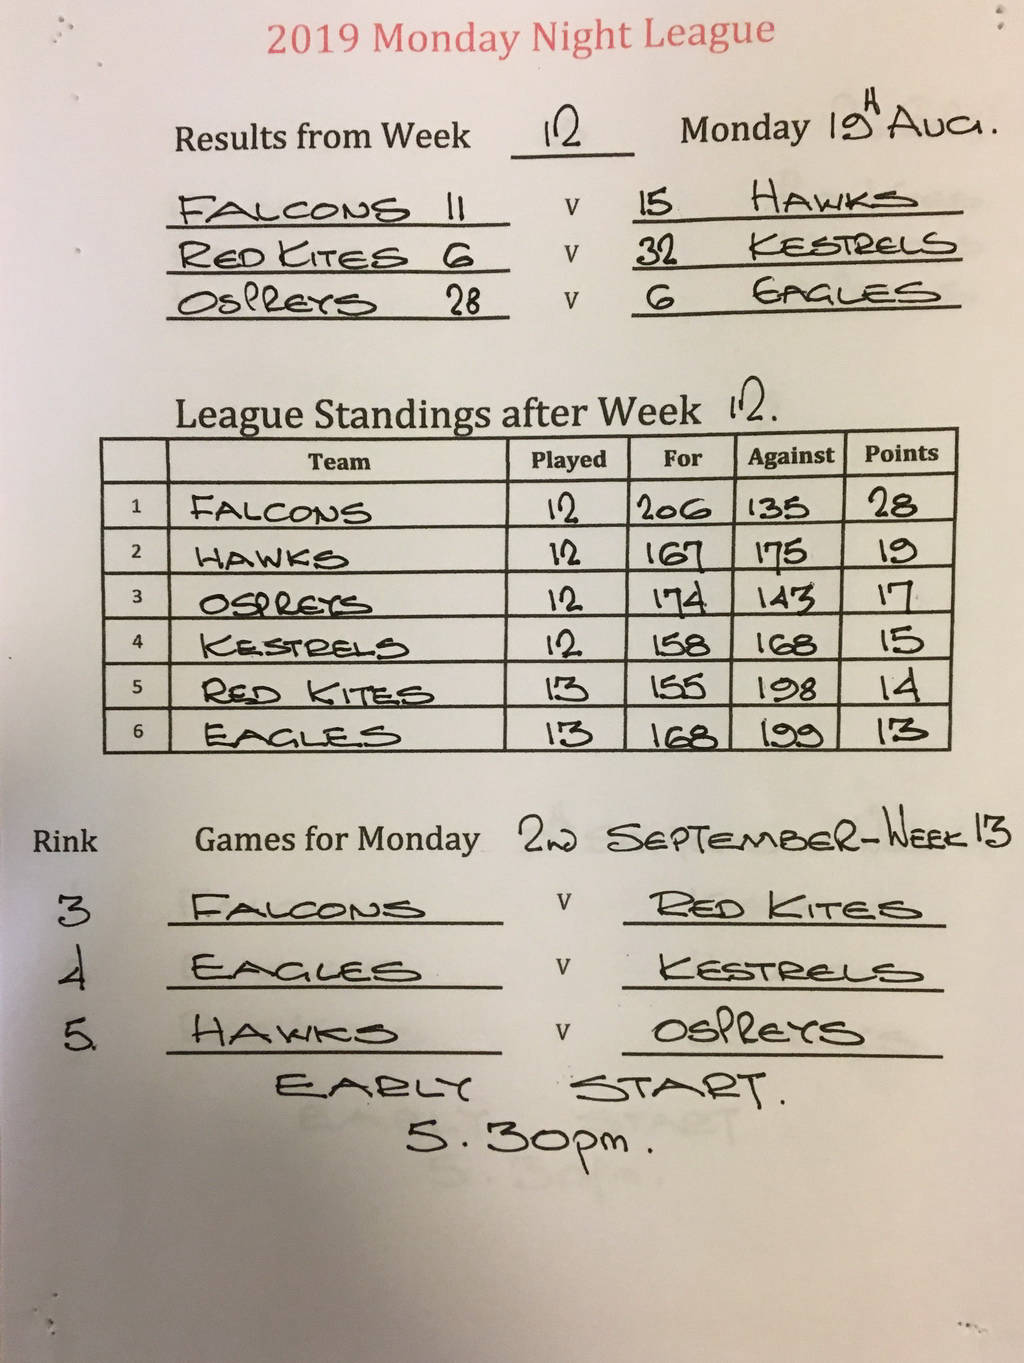 2019 Monday Night League
Results from Week 12 Monday 19TH AUG.
FALCONS 11 v 15 HAWKS
RED KITES 6 v 32 KESTRELS
OSPREYS 28 v 6 EAGLES
League Standings after Week 12.
Team Played For Against Points
1 FALCONS 12 206 135 28
2 HAWKS 12 167 175 19
3 OSPREYS 12 174 143 17
4 KESTRELS 12 158 168 15
5 RED KITES 13 155 198 14
6 EAGLES 13 168 199 13
Rink Games for Monday 2ND SEPTEMBER-WEEK 13
3 FALCONS v RED KITES
4 EAGLES v KESTRELS
5. HAWKS v OSPREYS
EARLY START.
5.30pm.